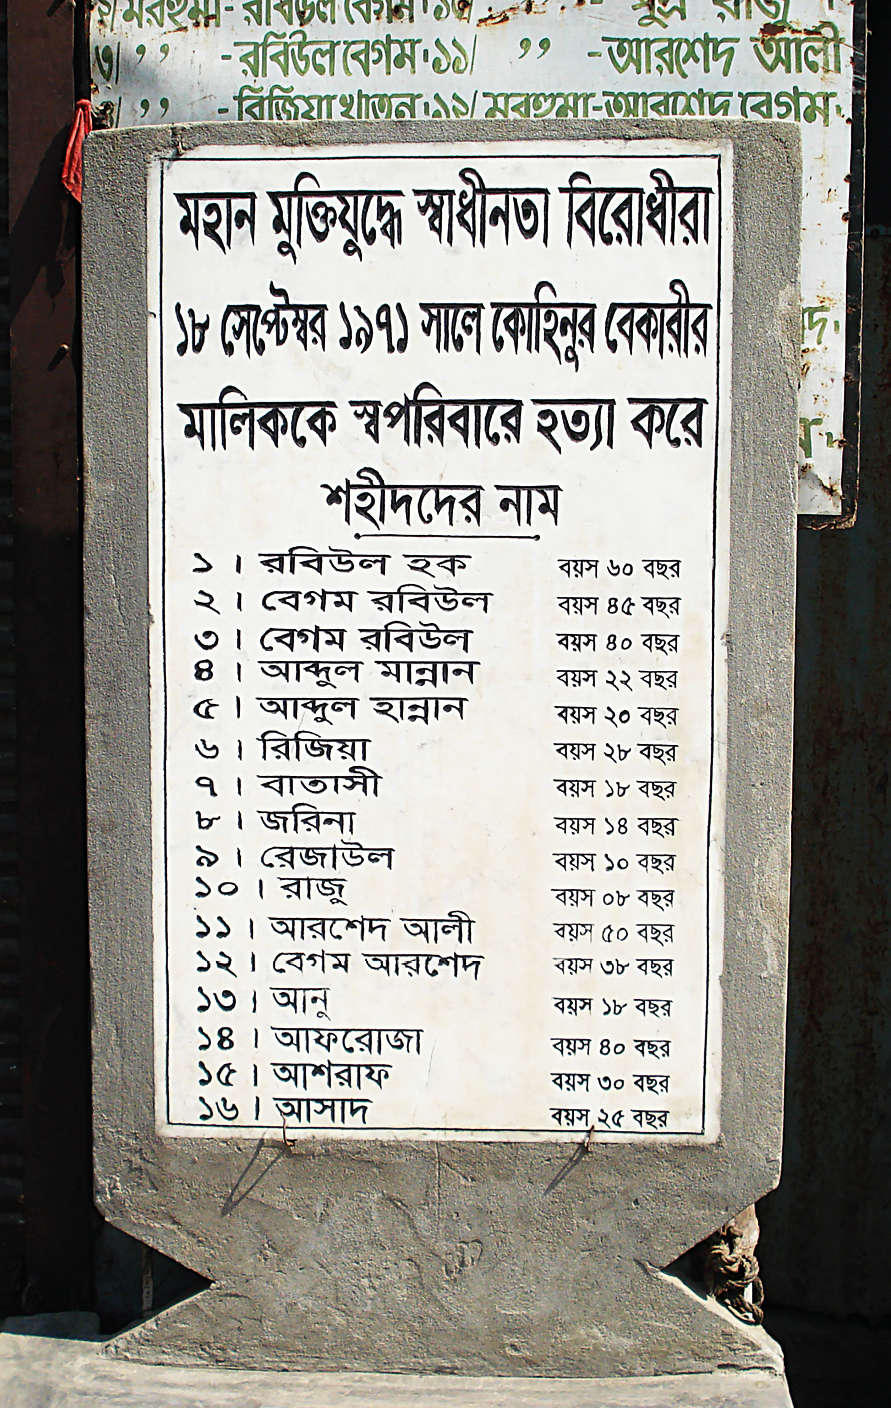 মরহুমা-রবিউল বেগম
৩/ ,, -রবিউল বেগম ১১/ ,, -আরশেদ আলী
,, -রিজিয়া খাতুন ১২/ মরহুমা-আরশেদ বেগম
মহান মুক্তিযুদ্ধে স্বাধীনতা বিরোধীরা
১৮ সেপ্টেম্বর ১৯৭১ সালে কোহিনুর বেকারীর
মালিককে স্বপরিবারে হত্যা করে
শহীদদের নাম
১ । রবিউল হক বয়স ৬০ বছর
২ । বেগম রবিউল বয়স ৪৫ বছর
৩ । বেগম রবিউল বয়স ৪০ বছর
৪ । আব্দুল মান্নান বয়স ২২ বছর
৫ । আব্দুল হান্নান বয়স ২০ বছর
৬ । রিজিয়া বয়স ২৮ বছর
৭ । বাতাসী বয়স ১৮ বছর
৮ । জরিনা বয়স ১৪ বছর
৯ । রেজাউল বয়স ১০ বছর
১০ । রাজু বয়স ০৮ বছর
১১ । আরশেদ আলী বয়স ৫০ বছর
১২ । বেগম আরশেদ বয়স ৩৮ বছর
১৩ । আনু বয়স ১৮ বছর
১৪ । আফরোজা বয়স ৪০ বছর
১৫ । আশরাফ বয়স ৩০ বছর
১৬ । আসাদ বয়স ২৫ বছর